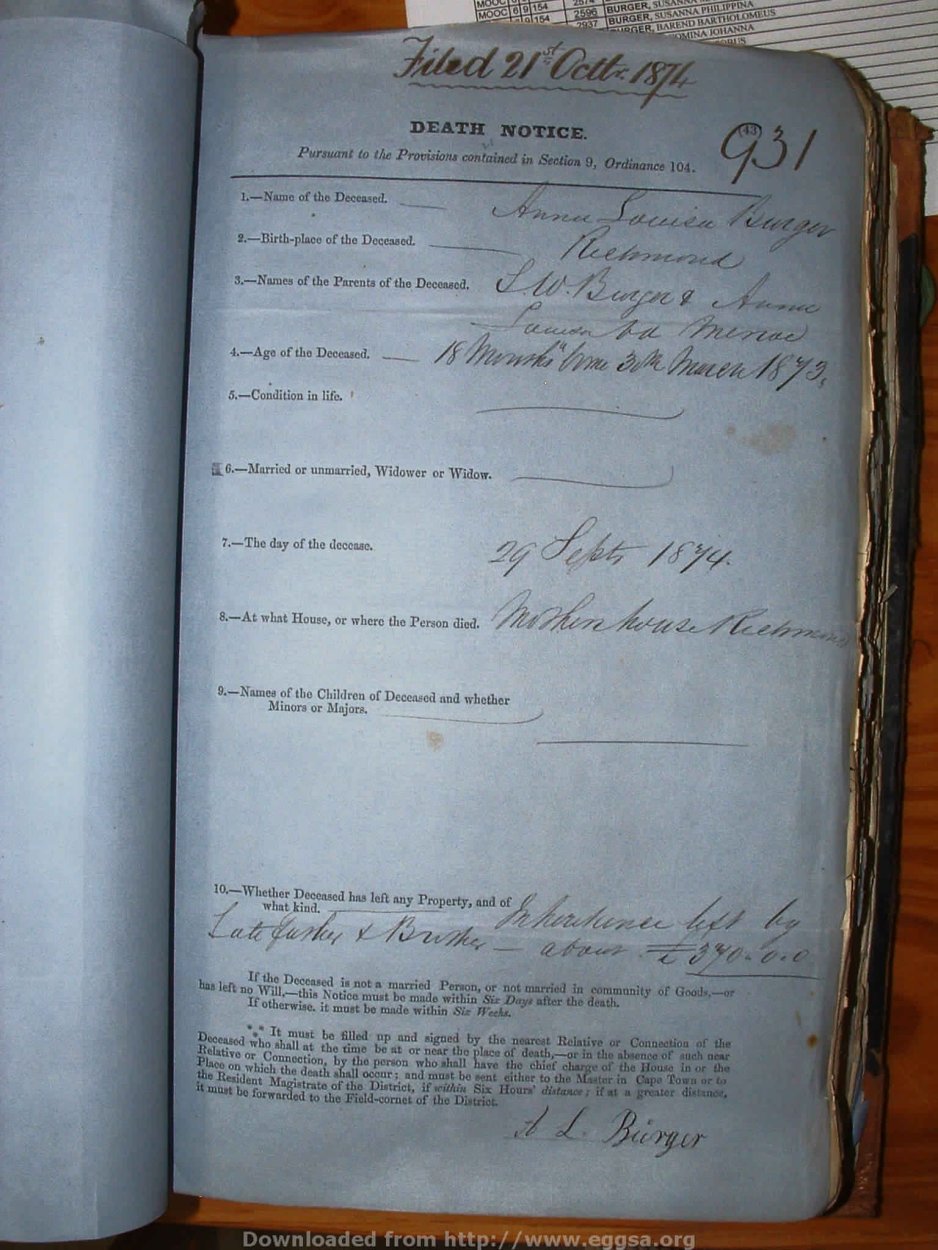 MOOC 6 9 154 2596 BURGER, SUSANNA PHILIPPINA
6 9 154 2937 BURGER, BAREND BARTHOLOMEUS
JOHANNA
Filed 21st Octbr. 1874
DEATH NOTICE.
(43)
931
Pursuant to the Provisions contained in Section 9, Ordinance 104.
1.—Name of the Deceased. Anna Louisa Burger
2.—Birth-place of the Deceased. Richmond
3.—Names of the Parents of the Deceased. S. W. Burger & Anna
Louisa
4.—Age of the Deceased. 18 Months born 30th March 1873.
5.—Condition in life.
6.—Married or unmarried, Widower or Widow.
7.—The day of the decease. 29 Septr 1874.
8.—At what House, or where the Person died. Mothers house Richmond
9.—Names of the Children of Deceased and whether
Minors or Majors.
10.—Whether Deceased has left any Property, and of
what kind. Inheritance left by
Late father & Brother — about £370.0.0
If the Deceased is not a married Person, or not married in community of Goods,—or
has left no Will,—this Notice must be made within Six Days after the death.
If otherwise, it must be made within Six Weeks.
*** It must be filled up and signed by the nearest Relative or Connection of the
Deceased who shall at the time be at or near the place of death,—or in the absence of such near
Relative or Connection, by the person who shall have the chief charge of the House in or the
Place on which the death shall occur; and must be sent either to the Master in Cape Town or to
the Resident Magistrate of the District, if within Six Hours' distance; if at a greater distance,
it must be forwarded to the Field-cornet of the District.
A L. Bürger
Downloaded from http://www.eggsa.org